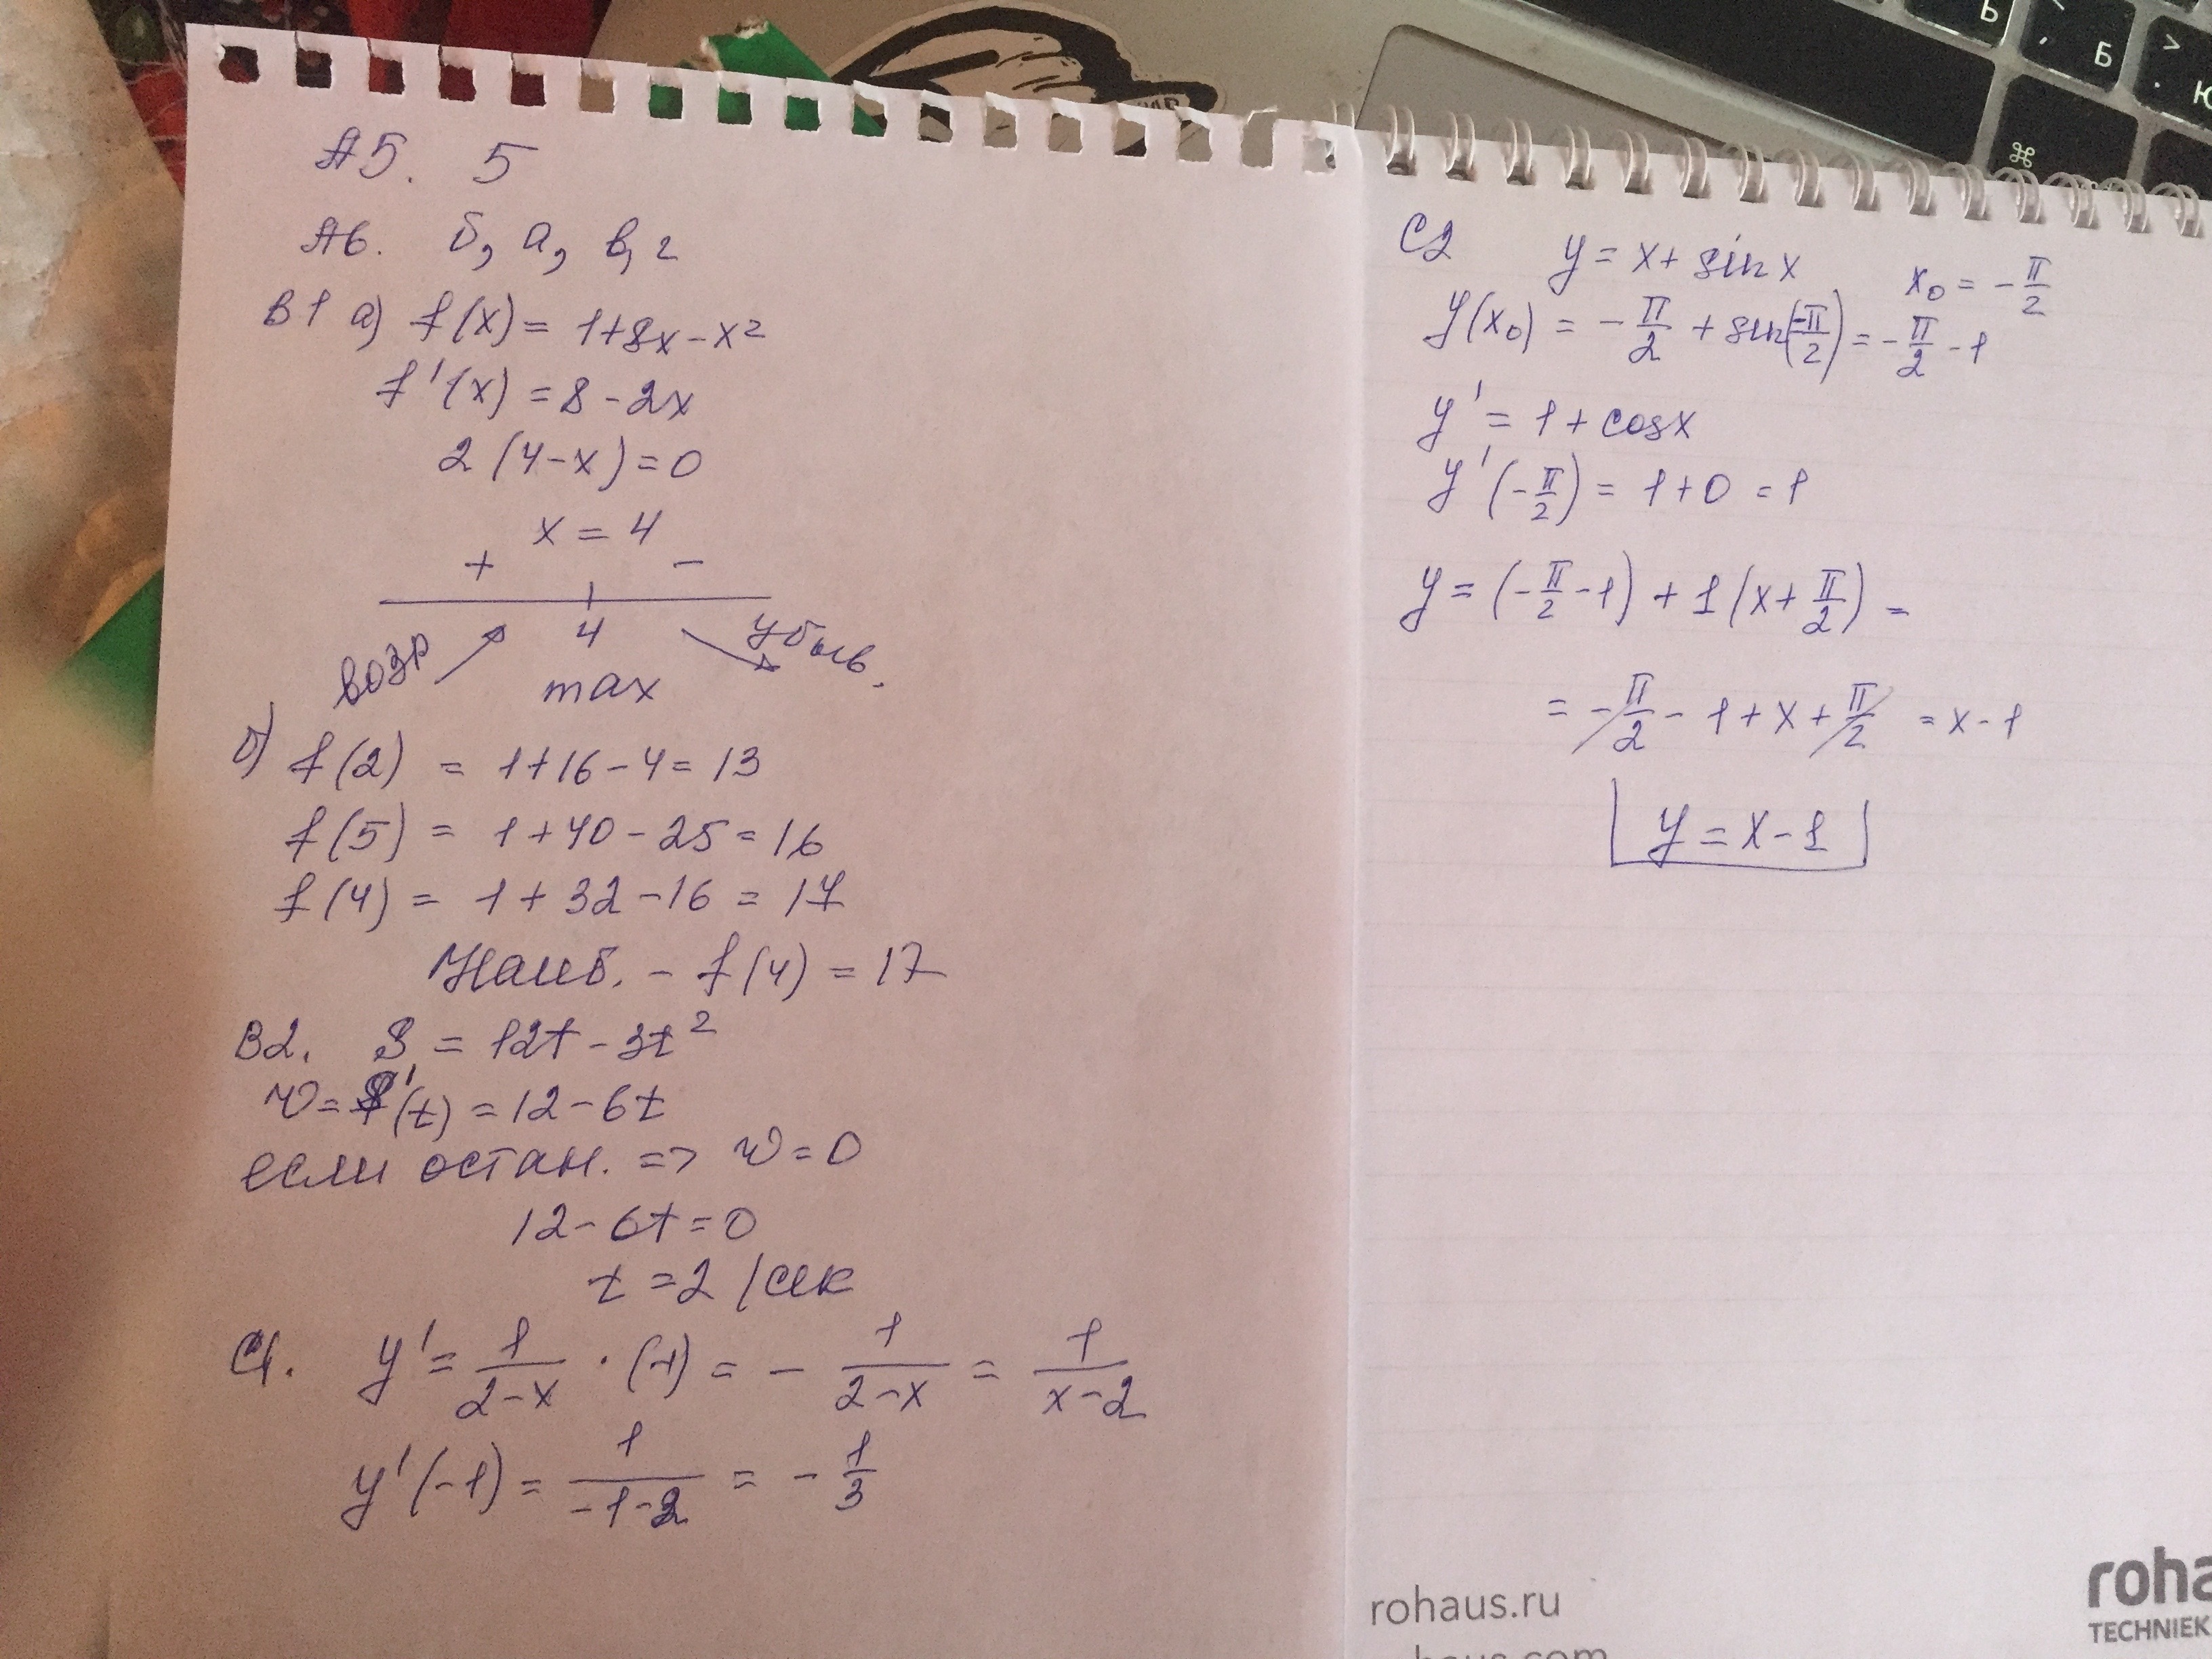 А5. 5
А6. б, а, в, г
В1 а) f(x) = 1+8x-x²
f'(x) = 8-2x
2(4-x)=0
x = 4
+ -
4
возр убыв.
max
б) f(2) = 1+16-4=13
f(5) = 1+40-25=16
f(4) = 1+32-16=17
Наиб. - f(4) = 17
В2. S = 12t-3t²
v=S'(t)=12-6t
если остан. => v=0
12-6t=0
t=2/сек
С1. y' = 1/(2-x) · (-1) = - 1/(2-x) = 1/(x-2)
y'(-1) = 1/(-1-2) = - 1/3
С2 y = x+ sin x x₀ = -π/2
y(x₀) = -π/2 + sin(-π/2) = -π/2 - 1
y' = 1+cosx
y'(-π/2) = 1+0 =1
y = (-π/2 -1) + 1(x+π/2) =
= -π/2 - 1+x+π/2 = x-1
y = x-1
rohaus.ru
roha
TECHNIEK
Ь
Б
Ю
,
>
.
⌘